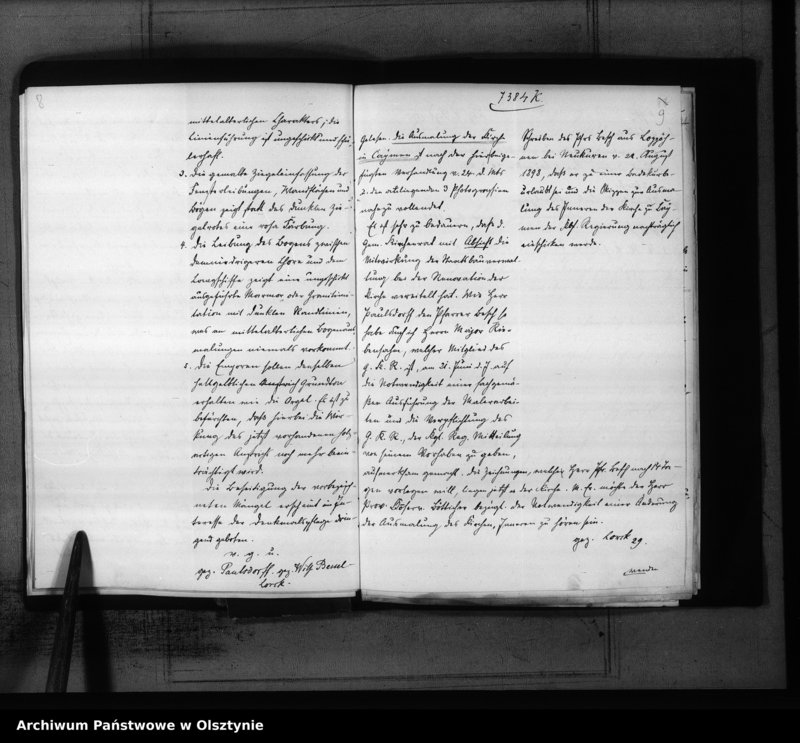 8
mittelalterlichen Charakters; die
Linienführung ist ungeschickt und schü-
lerhaft.
3. Die gemalte Ziegeleinfassung der
Fensterleibungen, Wandflächen und
Bögen zeigt statt des dunklen Zie-
gelrotes eine rosa Färbung.
4. Die Leibung des Bogens zwischen
dem niedrigeren Chore und dem
Langschiffe zeigt eine ungeschickt
ausgeführte Marmor oder Granitimi-
tation mit dunklen Randlinien,
was an mittelalterlichen Bogenaus-
malungen niemals vorkommt.
5. Die Emporen sollen denselben
hellgelblichen Grundton
erhalten wie die Orgel. Es ist zu
befürchten, daß hierbei die Wir-
kung des jetzt vorhandenen holz-
artigen Anstrichs noch mehr beein-
trächtigt wird.
Die Beseitigung der vorbezeich-
neten Mängel erscheint im In-
teresse der Denkmalspflege drin-
gend geboten.
v. g. u.
gez. Paulsdorff. gez. Wilh. Bessel-
Lorck.
7384 K
9
Gelesen. Die Ausmalung der Kirche
in Caymen ist nach der hier beige-
fügten Verhandlung v. 24. d. Mts
u. den anliegenden 3 Photographien
nahezu vollendet.
Es ist sehr zu bedauern, daß d.
Gem. Kirchenrat mit Absicht die
Mitwirkung der Staatsbauverwal-
tung bei der Renovation der
Kirche vereitelt hat. Wie Herr
Paulsdorff den Pfarrer Besch so
habe auch ich Herrn Major
welcher Mitglied des
G. K. R. ist, am 21. Juni d. J. auf
die Notwendigkeit einer sachgemä-
ßen Ausführung der Malerarbei-
ten und die Verpflichtung des
G. K. R., der Kgl. Reg. Mitteilung
von seinem Vorhaben zu geben,
aufmerksam gemacht. Die Zeichnungen, welche Herr Pfr. Besch nach 14 Ta-
gen vorlegen will, liegen jetzt in der Kirche. M. E. möchte der Herr
Prov. Conserv. Bötticher bezügl. der Notwendigkeit einer Änderung
der Ausmalung des Kirchen-Inneren zu hören sein.
gez. Lorck 29.
wenden
Schreiben des Pfrs Besch aus Loppöh-
nen bei Neukuren v. 21. August
1898, daß er zu einer Badekur
beurlaubt sei und die Skizzen zur Ausma-
lung des Inneren der Kirche zu Cay-
men der Kgl. Regierung nachträglich
einschicken werde.
Archiwum Państwowe w Olsztynie